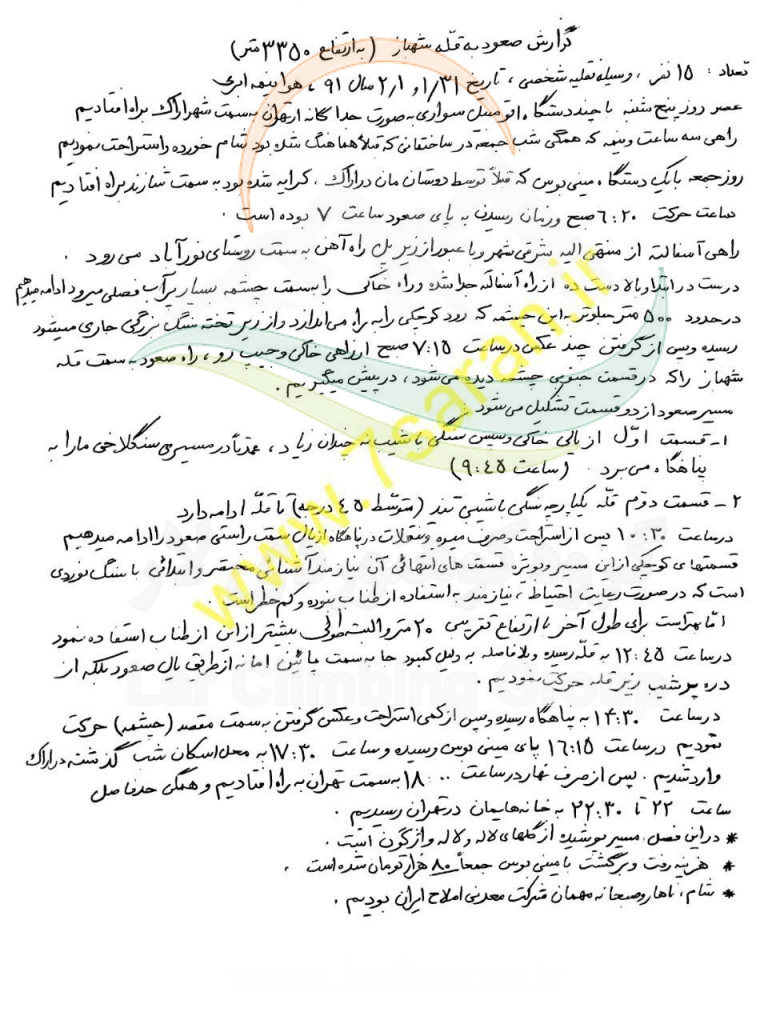 گزارش صعود به قلّه شهباز (به ارتفاع ۳۳۵۰ متر)
تعداد : ۱۵ نفر ، وسیله نقلیه شخصی ، تاریخ ۱/۳۱ و ۲/۱ سال ۹۱ ، هوا نیمه ابری
عصر روز پنج شنبه با چند دستگاه اتومبیل سواری به صورت جداگانه از تهران به سمت شهر اراک براه افتادیم
راهی سه ساعت ونیمه که همگی شب جمعه در ساختمانی که قبلاً هماهنگ شده بود شام خورده و استراحت نمودیم
روز جمعه با یک دستگاه مینی بوس که قبلاً توسط دوستان مان در اراک ، کرایه شده بود به سمت شازند براه افتادیم
ساعت حرکت ۶:۲۰ صبح وزمان رسیدن به پای صعود ساعت ۷ بوده است .
راهی آسفالته از منتهی الیه شرقی شهر وبا عبور از زیر پل راه آهن به سمت روستای نورآباد می رود .
درست در ابتدا و بالا دست ده از راه آسفالته جدا شده و راه خاکی را به سمت چشمه بسیار پرآب فصلی میرود ادامه میدهیم
در حدود ۵۰۰ متر جلوتر به این چشمه که رود کوچکی را به راه می اندازد و از زیر تخته سنگ بزرگی جاری میشود
رسیده وپس از گرفتن چند عکس در ساعت ۷:۱۵ صبح از راهی خاکی و جیپ رو ، راه صعود به سمت قله
شهباز را که در قسمت جنوبی چشمه دیده می شود ، در پیش میگیریم .
مسیر صعود از دو قسمت تشکیل می شود :
۱- قسمت اوّل از یالی خاکی وسپس سنگی با شیب نه چندان زیاد ، عمدتاً در مسیری سنگلاخی ما را به
پناهگاه می برد . (ساعت ۹:۴۵)
۲- قسمت دوّم قله یکپارچه سنگی با شیبی تند (متوسّط ۴۵ درجه) تا قلّه ادامه دارد
در ساعت ۱۰:۳۰ پس از استراحت و صرف میوه وتنقلات در پناهگاه از یال سمت راستی صعود را ادامه میدهیم
قسمتهای کوچکی از این مسیر وبویژه قسمت های انتهائی آن نیازمند آشنائی مختصر و ابتدائی با سنگ نوردی
است که در صورت رعایت احتیاط ، نیازمند به استفاده از طناب نبوده و کم خطر است .
امّا بهتر است برای طول آخر با ارتفاع تقریبی ۲۰ متر والبته طولی بیشتر از این از طناب استفاده نمود
در ساعت ۱۲:۴۵ به قلّه رسیده وبلافاصله به دلیل کمبود جا به سمت پائین اما نه از طریق یال صعود بلکه از
دره پرشیب زیر قله حرکت نمودیم .
در ساعت ۱۴:۳۰ به پناهگاه رسیده وپس از کمی استراحت و عکس گرفتن به سمت مقصد (چشمه) حرکت
نمودیم در ساعت ۱۶:۱۵ پای مینی بوس رسیده و ساعت ۱۷:۳۰ به محل اسکان شب گذشته در اراک
وارد شدیم . پس از صرف نهار در ساعت ۱۸:۰۰ به سمت تهران به راه افتادیم و همگی حدفاصل
ساعت ۲۲ تا ۲۲:۳۰ به خانه هایمان در تهران رسیدیم .
* در این فصل مسیر پوشیده از گلهای لاله و لاله واژگون است .
* هزینه رفت و برگشت با مینی بوس جمعاً ۸۰ هزار تومان شده است .
* شام ، ناهار و صبحانه مهمان شرکت معدنی املاح ایران بودیم .
www.7saran.ir
Lar Climbing Group
www.haftsaran.ir